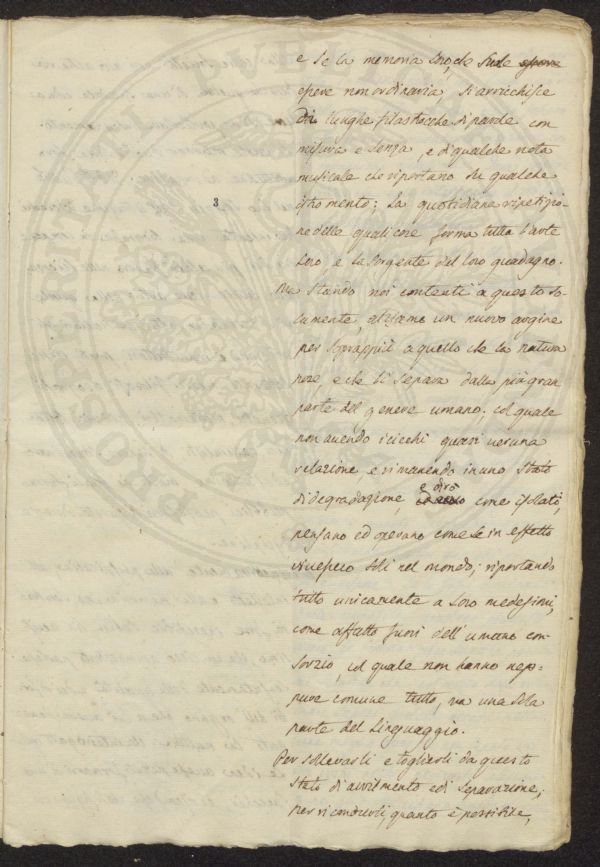 e se la memoria loro, che suole
opere non ordinaria, s'arricchisce
di lunghe filastrocche di parole con
misura e senza, e di qualche nota
musicale che riportano su qualche
istromento; la quotidiana ripetizio-
ne delle quali cose forma tutta l'arte
loro, e la sorgente del loro guadagno.
Ma stando noi contenti a questo so-
lamente, alziamo un nuovo argine
per soprappiù a quello che la natura
pose, e che li separa dalla più gran
parte del genere umano; col quale
non avendo i ciechi quasi veruna
relazione, e rimanendo in uno stato
di degradazione, e dirò come isolati,
pensano ed operano come se in effetto
vivessero soli nel mondo; riportando
tutto unicamente a loro medesimi,
come affatto fuori dell'umano con-
sorzio, col quale non hanno nep-
pure comune tutto, ma una sola
parte del linguaggio.
Per sollevarli e toglierli da questo
stato di avvilimento e di separazione;
per ricondurli, quanto è possibile,
3